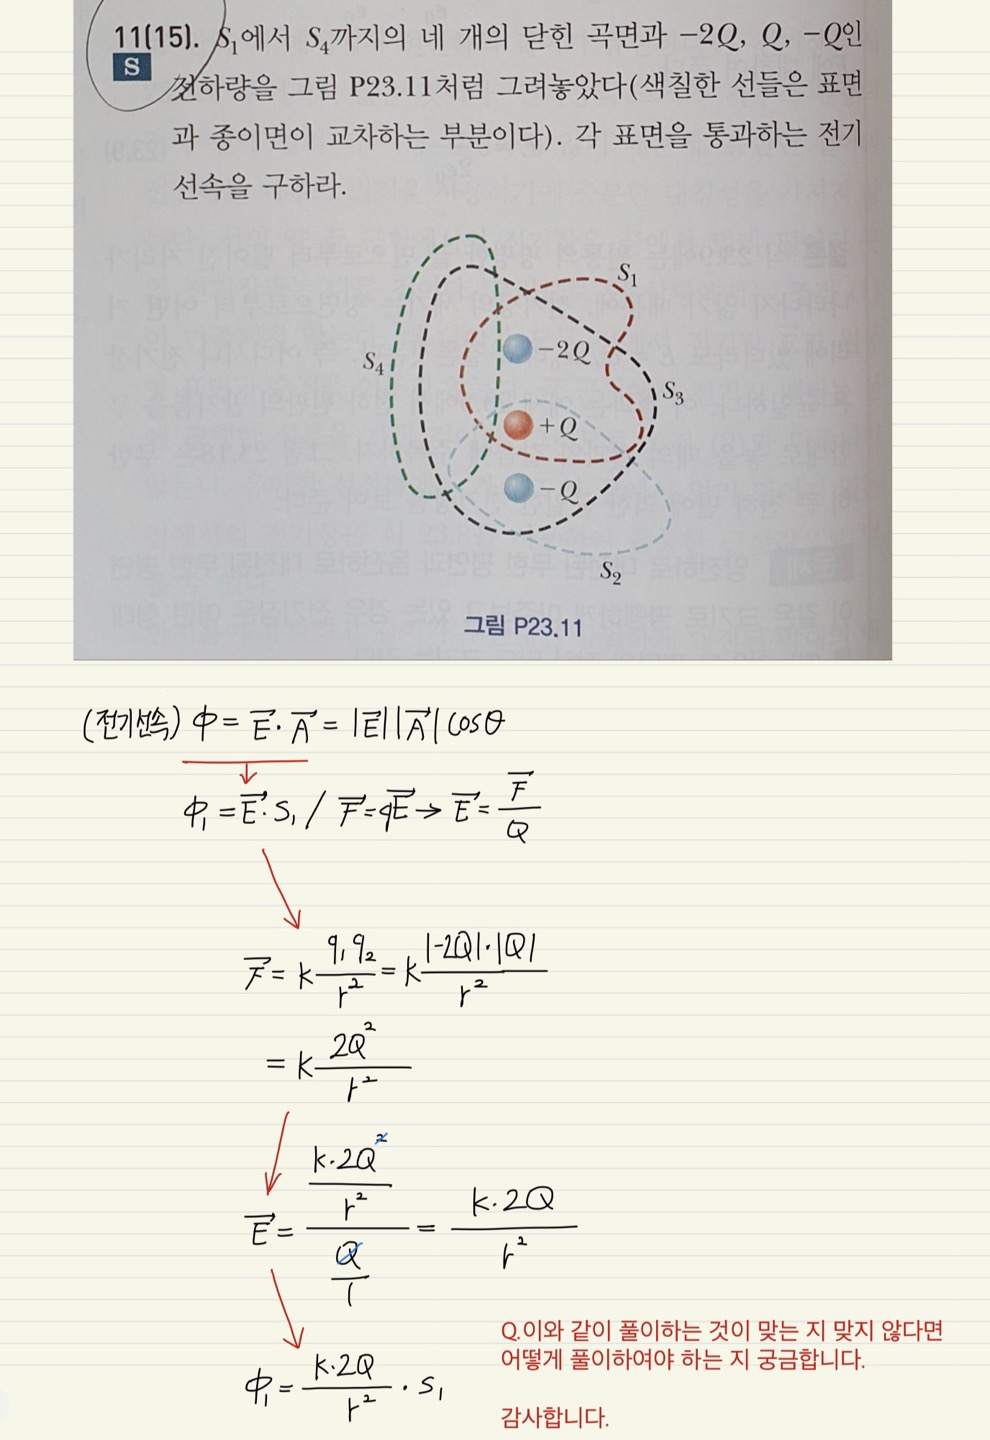 11(15). S₁에서 S₄까지의 네 개의 닫힌 곡면과 −2Q, Q, −Q인
S 전하량을 그림 P23.11처럼 그려놓았다(색칠한 선들은 표면
과 종이면이 교차하는 부분이다). 각 표면을 통과하는 전기
선속을 구하라.
S₁
S₄
−2Q
S₃
+Q
−Q
S₂
그림 P23.11
(전기선속) Φ = E⃗ · A⃗ = |E⃗||A⃗| cosθ
Φ₁ = E⃗ · S₁ / F⃗ = qE⃗ → E⃗ = F⃗/Q
F⃗ = k q₁q₂/r² = k |-2Q|·|Q|/r²
= k 2Q²/r²
E⃗ = (k·2Q²/r²)/(Q/1) = k·2Q/r²
Φ₁ = k·2Q/r² · S₁
Q.이와 같이 풀이하는 것이 맞는 지 맞지 않다면
어떻게 풀이하여야 하는 지 궁금합니다.
감사합니다.